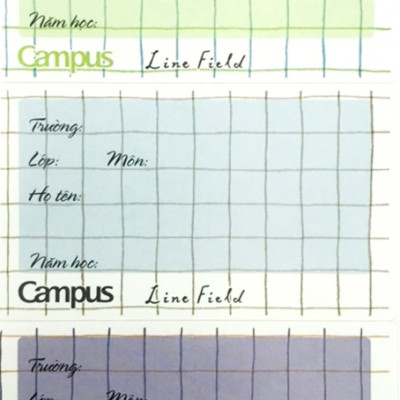 Năm học:
Campus Line Field
Trường:
Lớp: Môn:
Họ tên:
Năm học:
Campus Line Field
Trường:
Lớp: Môn: